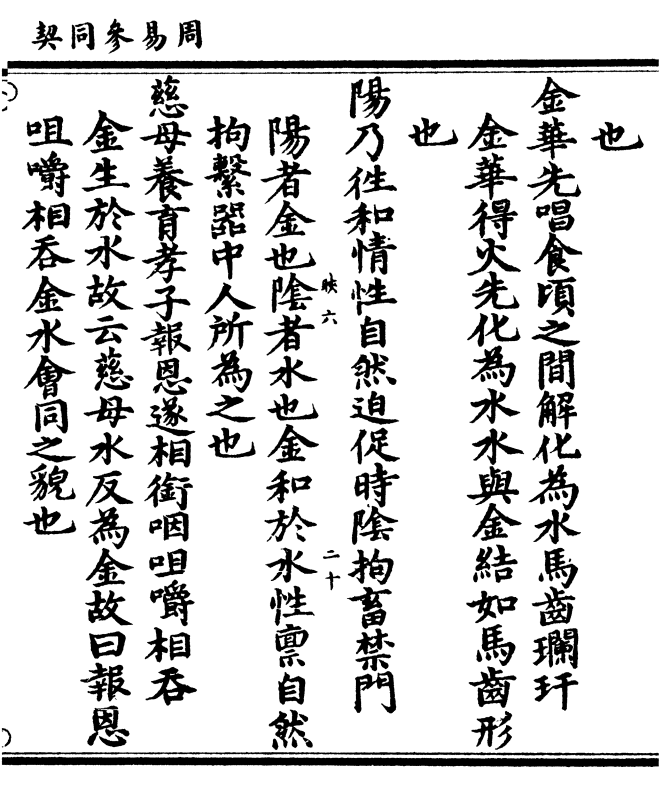 周易參同契
也
金華先唱食頃之間解化為水馬齒瓓玕
金華得火先化為水水與金結如馬齒形
也
陽乃徃和情性自然迫促時陰拘畜禁門
映六
二十
陽者金也陰者水也金和於水性禀自然
拘繫器中人所為之也
慈母養育孝子報恩遂相銜咽咀嚼相吞
金生於水故云慈母水反為金故曰報恩
咀嚼相吞金水會同之貌也